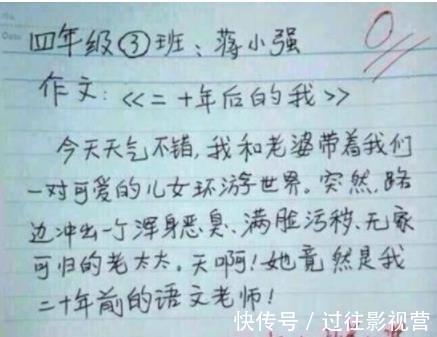 四年级③班：蒋小强
0
作文：《二十年后的我》
今天天气不错，我和老婆带着我们
一对可爱的儿女环游世界。突然，路
边冲出一个浑身恶臭、满脸污秽、无家
可归的老太太。天啊！她竟然是我
二十年前的语文老师！
快传号/过往影视营